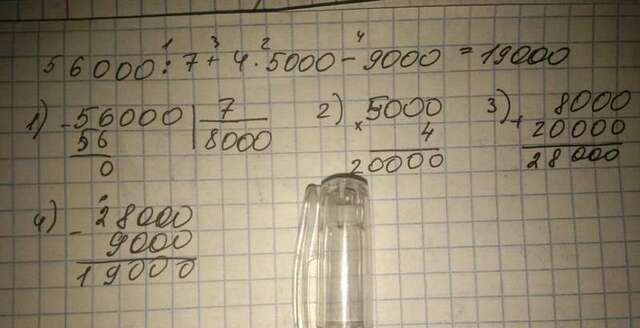 1 3 2 4
56000:7+4·5000-9000=19000
1) -56000 | 7
56 8000
0
2) 5000
× 4
20000
3) 8000
+ 20000
28000
4) 28000
- 9000
19000